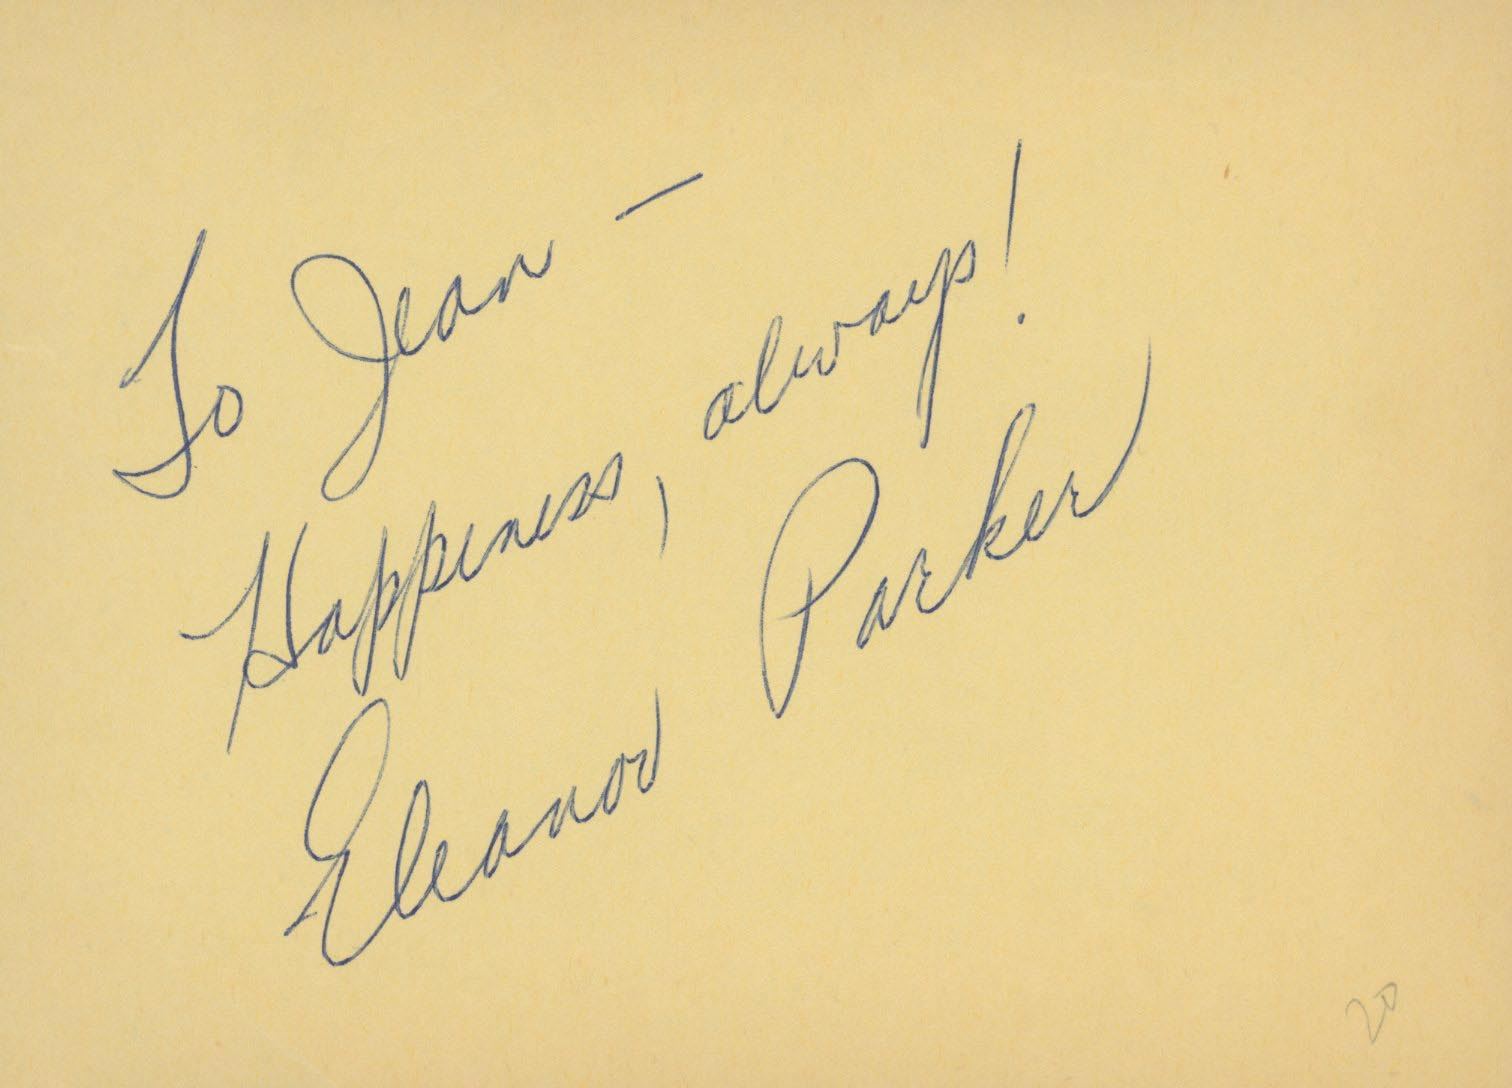 To Jean —
Happiness, always!
Eleanor Parker
20